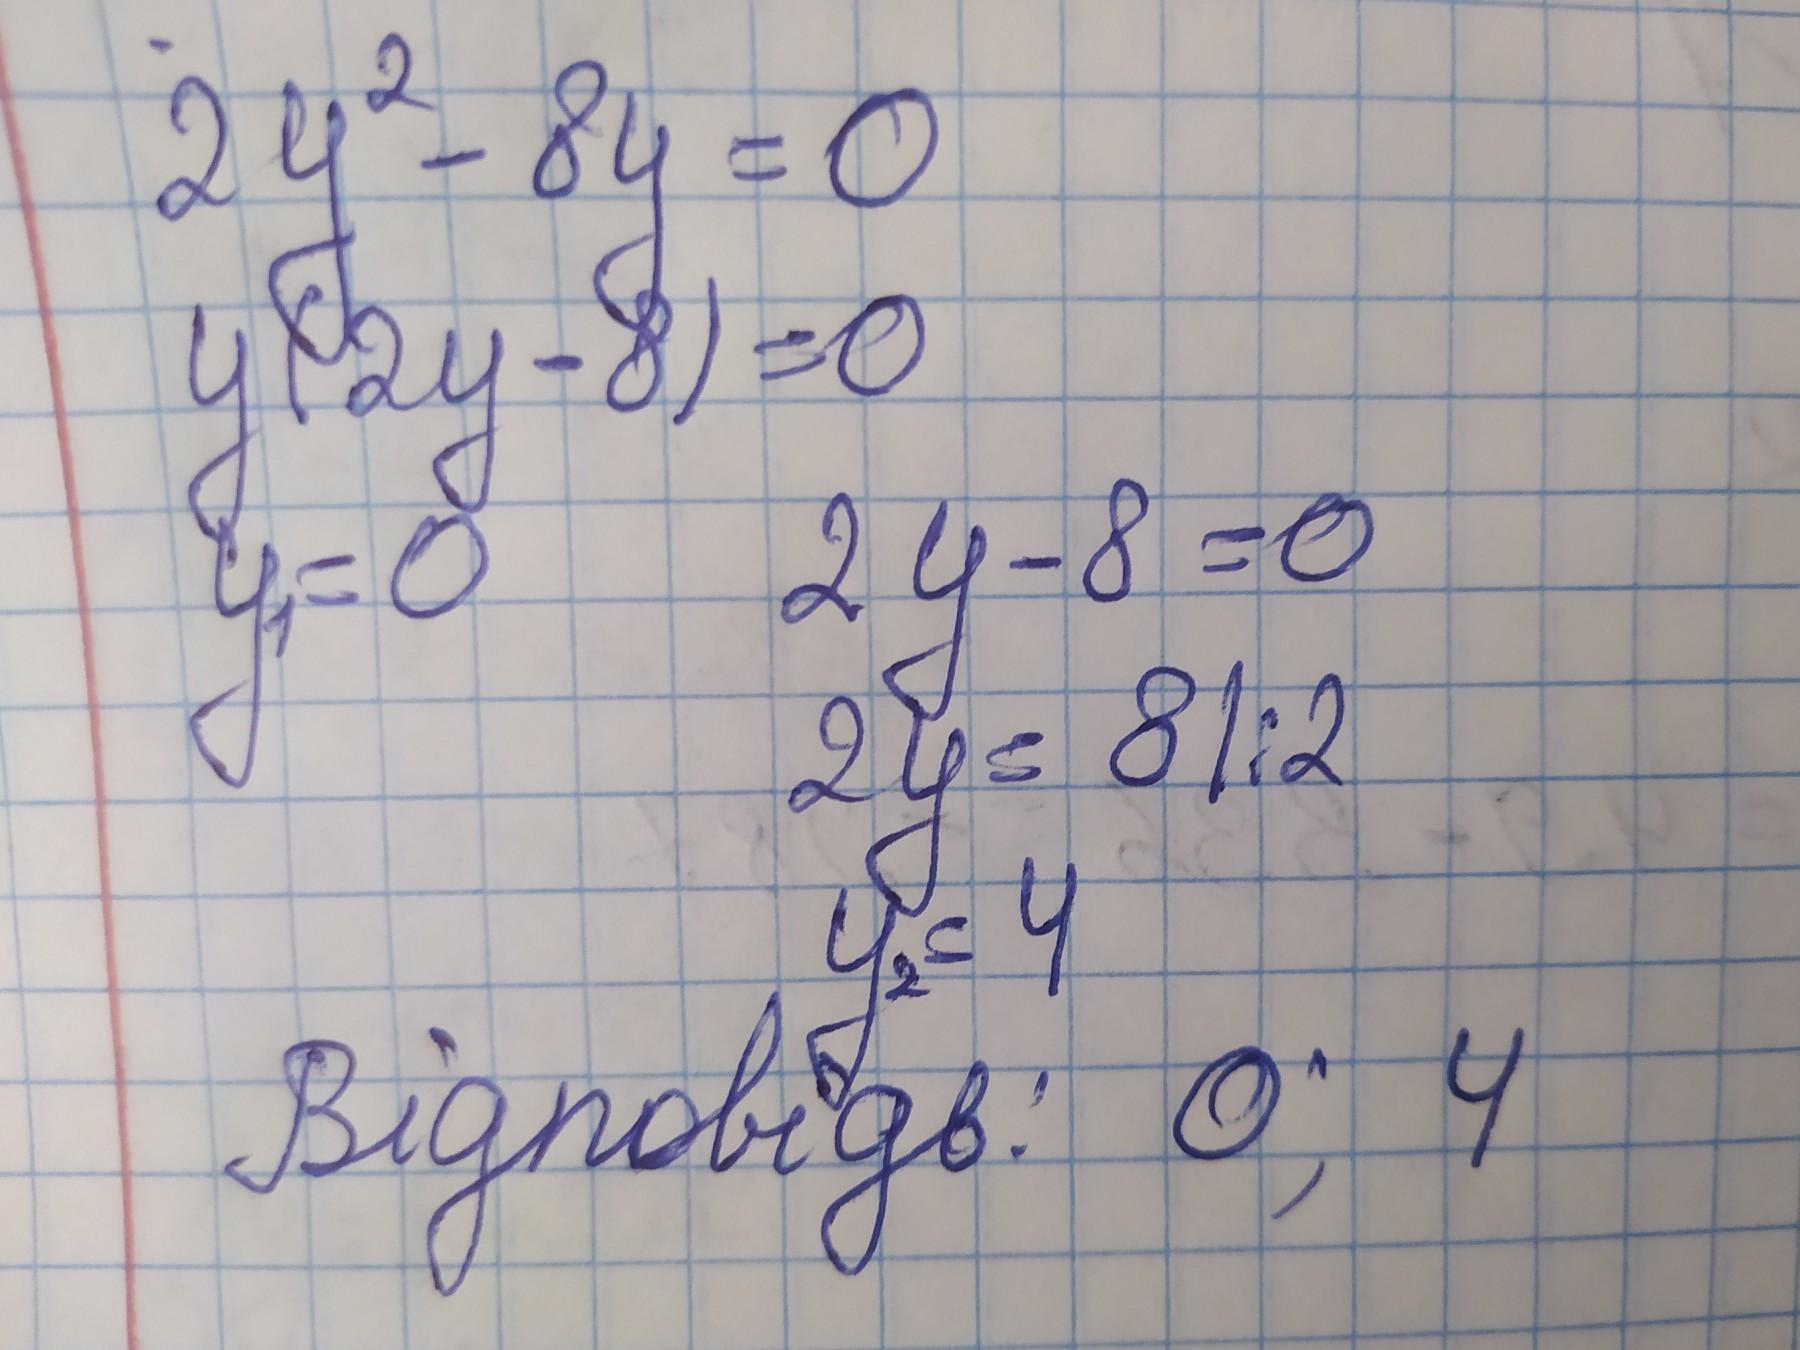 2y² - 8y = 0
y(2y - 8) = 0
y₁ = 0 2y - 8 = 0
2y = 8 |:2
y₂ = 4
Відповідь: 0; 4